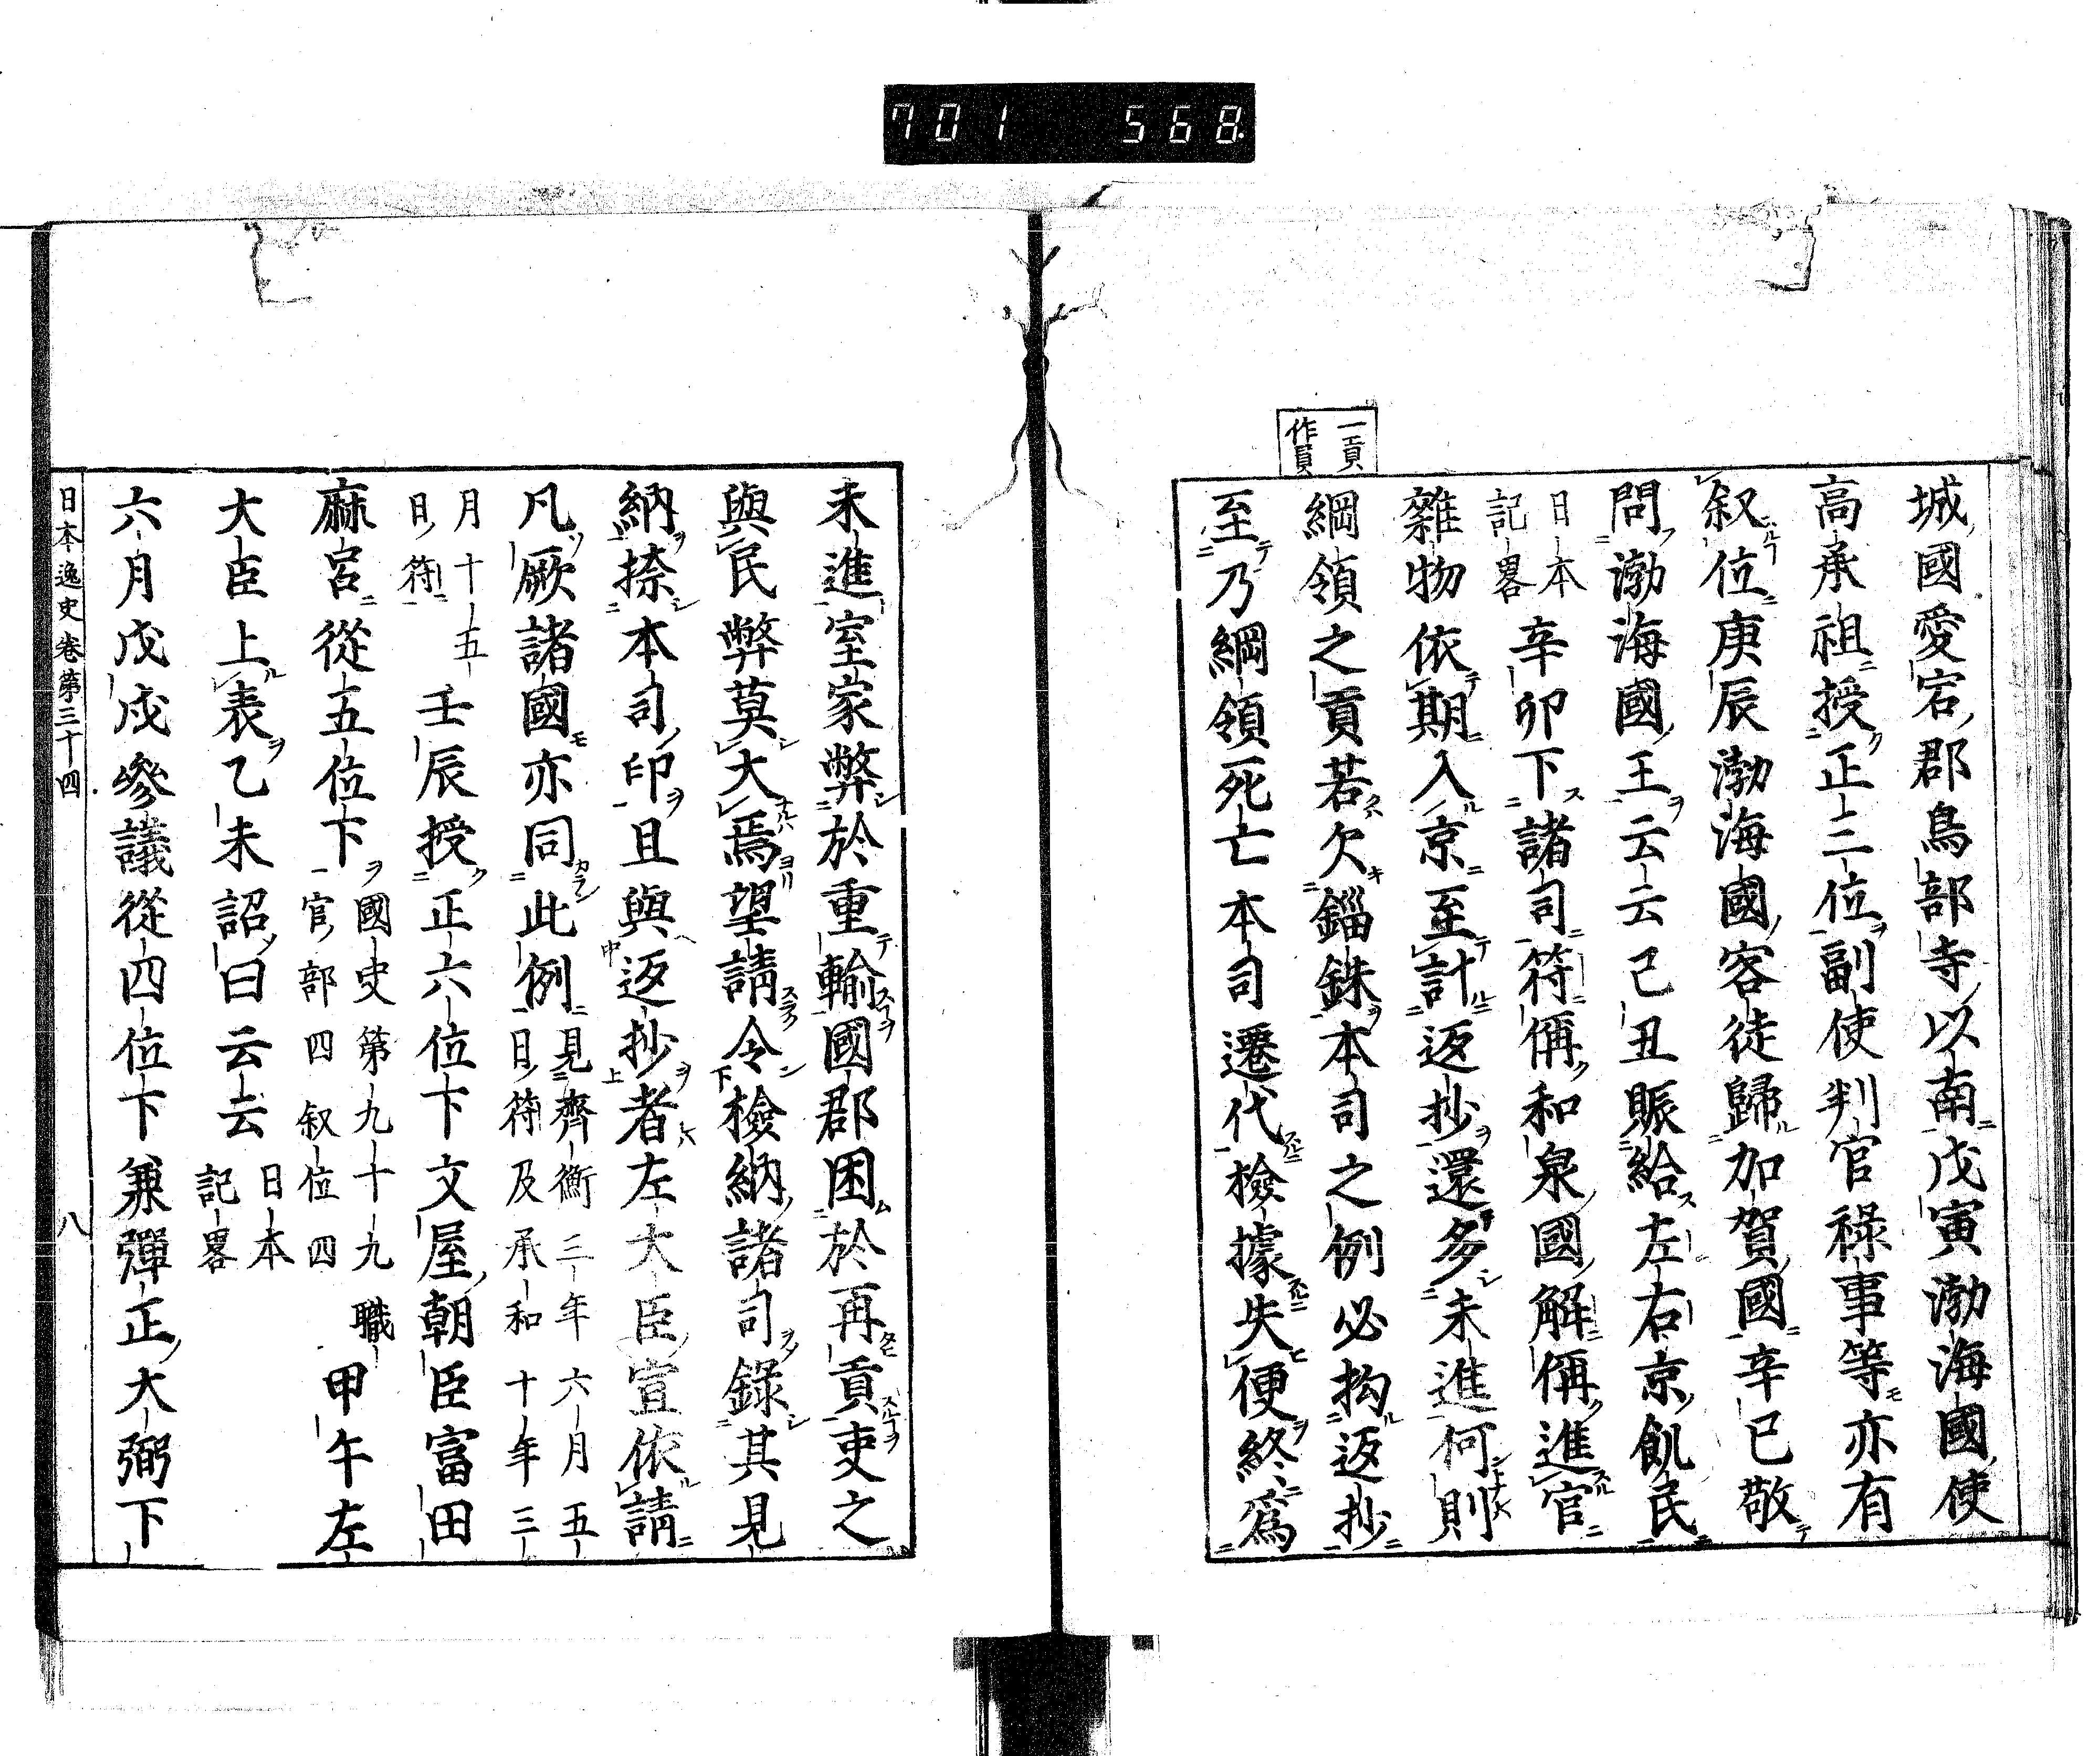 701 568
一貢
作貟
城國愛宕郡鳥部寺以南戊寅渤海國使
高承祖授正三位副使判官祿事等亦有
叙位庚辰渤海國客徒歸加賀國辛巳敬
問渤海國王云云己丑賑給左右京飢民
日本
記畧
辛卯下諸司符偁和泉國解偁進官
雜物依期入京至計返抄還多未進何則
綱領之貢若欠錙銖本司之例必抅返抄
至乃綱領死亡本司遷代檢據失便終爲
未進室家弊於重輸國郡困於再貢吏之
與民弊莫大焉望請令檢納諸司錄其見
納捺本司印且與返抄者左大臣宣依請
凡厥諸國亦同此例
見齊衡三年六月五
日符及承和十年三
月十五
日符
壬辰授正六位下文屋朝臣富田
麻呂從五位下
國史第九十九職
官部四叙位四
甲午左
大臣上表乙未詔曰云云
日本
記畧
六月戊戌參議從四位下兼彈正大弼下
日本逸史卷第三十四
八